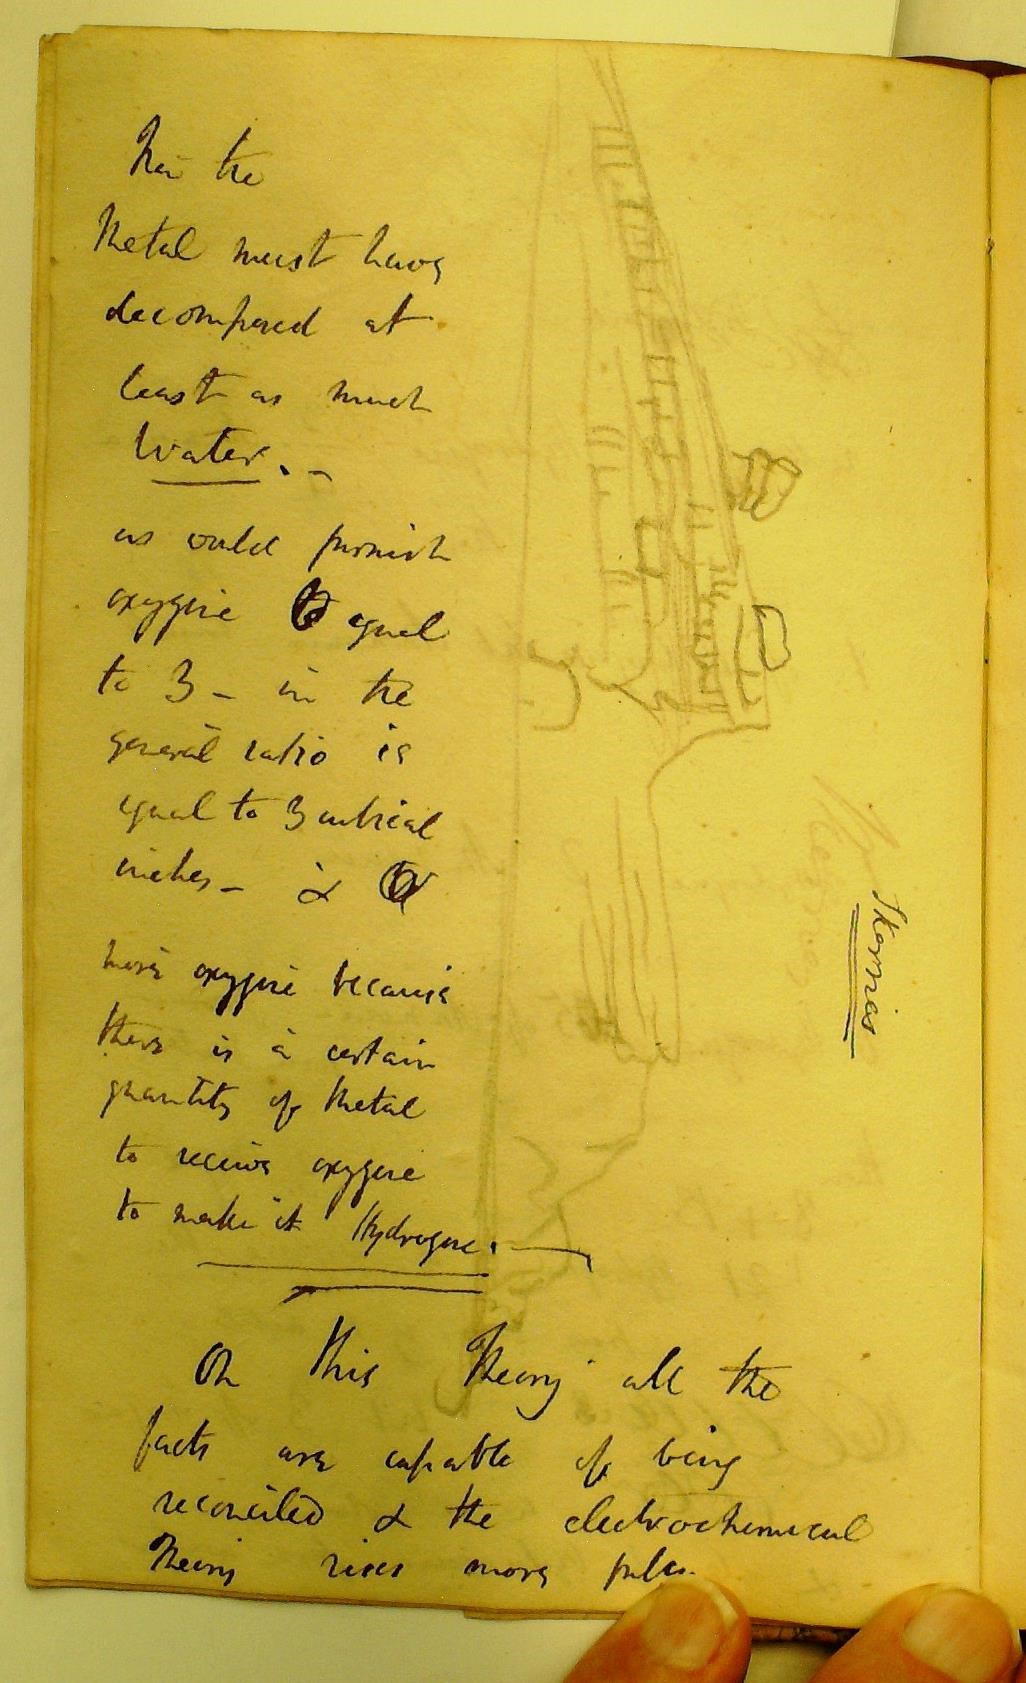 Now the
Metal must have
decomposed at
least as much
Water. -
as would furnish
oxygene equal
to 3 - in the
general ratio is
equal to 3 cubical
inches - &
more oxygene because
there is a certain
quantity of Metal
to receive oxygene
to make it Hydrogene. -
On this Theory all the
facts are capable of being
reconciled & the electrochemical
Theory rises more
Skerries